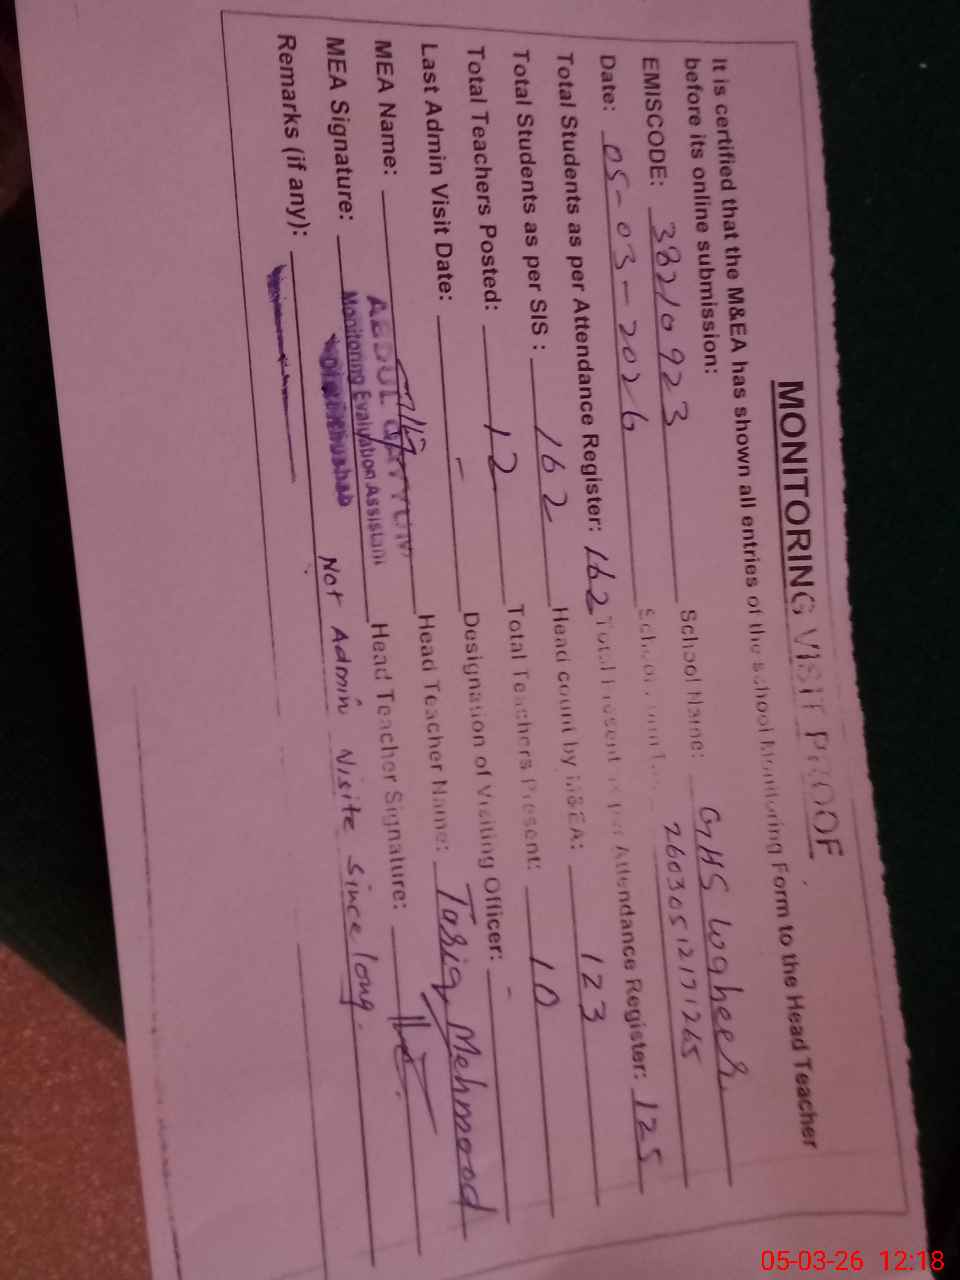 MONITORING VISIT PROOF
It is certified that the M&EA has shown all entries of the school Monitoring Form to the Head Teacher
before its online submission:
EMISCODE: 38210923 School Name: GHS Wagheer
Date: 05-03-2026 26030512171265
Total Students as per Attendance Register: 162 Total Present as per Attendance Register: 125
Total Students as per SIS : 162 Head count by M&EA: 123
Total Teachers Posted: 12 Total Teachers Present: 10
Last Admin Visit Date: - Designation of Visiting Officer: -
MEA Name: ABDUL QAYYUM Head Teacher Name: Tariq Mehmood
MEA Signature: Monitoring Evaluation Assistant Head Teacher Signature:
Remarks (if any): Not Admin Visite Since long.
05-03-26 12:18